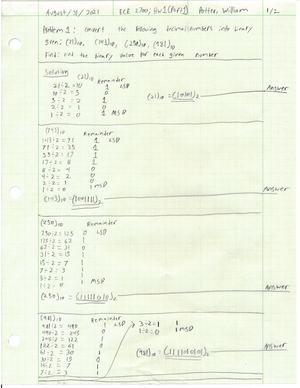 August/31/2021 ECE 2700; HW1 (Part 1) Potter, William 1/2
Problem 1: Convert the following decimal numbers into binary
(21)10, (143)10, (250)10, (981)10
Find: Find the binary value for each given number
Solution
(21)10
Remainder
21÷2 = 10 1 LSD
10÷2 = 5 0
÷2 = 2 1
2÷2 = 1 0
1÷2 = 0 1 MSD
Answer
(143)10 Remainder
143÷2 = 71 1 LSD
÷2 = 35 1
÷2 = 17 1
17÷2 = 8 1
8÷2 = 4 0
4÷2 = 2 0
2÷2 = 1 0
1÷2 = 0 1 MSD
Answer
(250)10 Remainder
250÷2 = 125 0 LSD
125÷2 = 62 1
62÷2 = 31 0
31÷2 = 15 1
15÷2 = 7 1
7÷2 = 3 1
3÷2 = 1 1
1÷2 = 0 1 MSD
(250)10 = (11111010)2
Answer
(981)10 Remainder
981÷2 = 490 1 LSD
490÷2 = 245 0
245÷2 = 122 1
122÷2 = 61 0
61÷2 = 30 1
30÷2 = 15 0
15÷2 = 7 1
7÷2 = 3 1
3÷2 = 1 1
1÷2 = 0 1 MSD
Answer